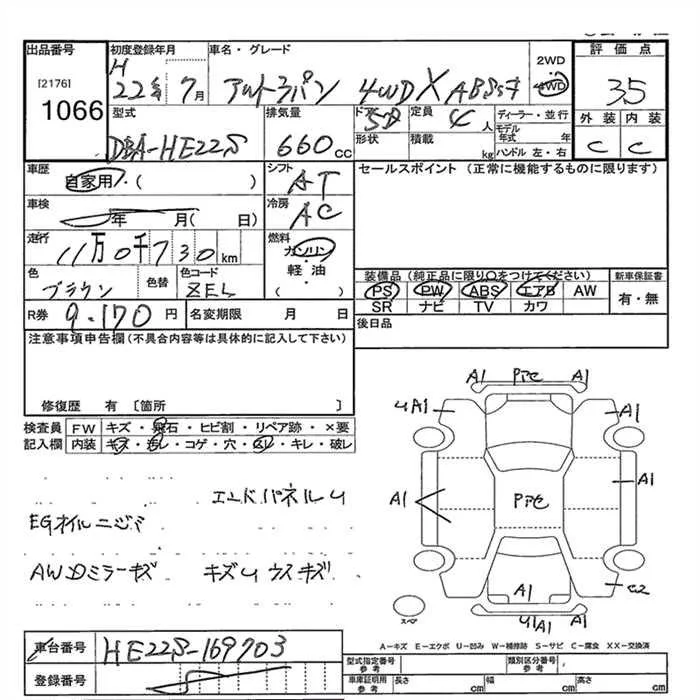 出品番号 初度登録年月 車名・グレード 2WD 評価点
[2176] H
1066 22年 7月 アルトラパン 4WD X ABS付 4WD 3.5
型式 排気量 ドア 5D 定員 4人 ディーラー・並行 外装 内装
DBA-HE22S 660cc 形状 積載 kg モデル年式 年 C C
ハンドル 左・右
車歴 自家用・( ) シフト AT セールスポイント (正常に機能するものに限ります)
車検 年 月( 日) 冷房 AC
走行 11万0千730km 燃料 ガソリン
色 ブラウン 色替 色コード ZEL 軽・油 ( ) 装備品(純正品に限り○をつけてください) 新車保証書
PS PW ABS エアB AW 有・無
SR ナビ TV カワ
R券 9.170円 名変期限 月 日 後日品
注意事項申告欄(不具合内容等は具体的に記入して下さい)
修復歴 有 〔箇所 〕
検査員 FW キズ・飛石・ヒビ割・リペア跡・×要
記入欄 内装 キズ・汚レ・コゲ・穴・スレ・キレ・破レ
エンドパネルU
EGオイルニジミ
AWDミラーキズ キズU ウスキズ
A1 Pアセ A1
UA1 A1
A1 Pアセ A1
A1 C2
スペア U1A1
A-キズ E-エクボ U-凹み W-補修跡 S-サビ C-腐食 XX-交換済
車台番号 HE22S-169703
登録番号
型式指定番号 参考 類別区分番号 参考
車庫証明用 参考 長さ cm 幅 cm 高さ cm